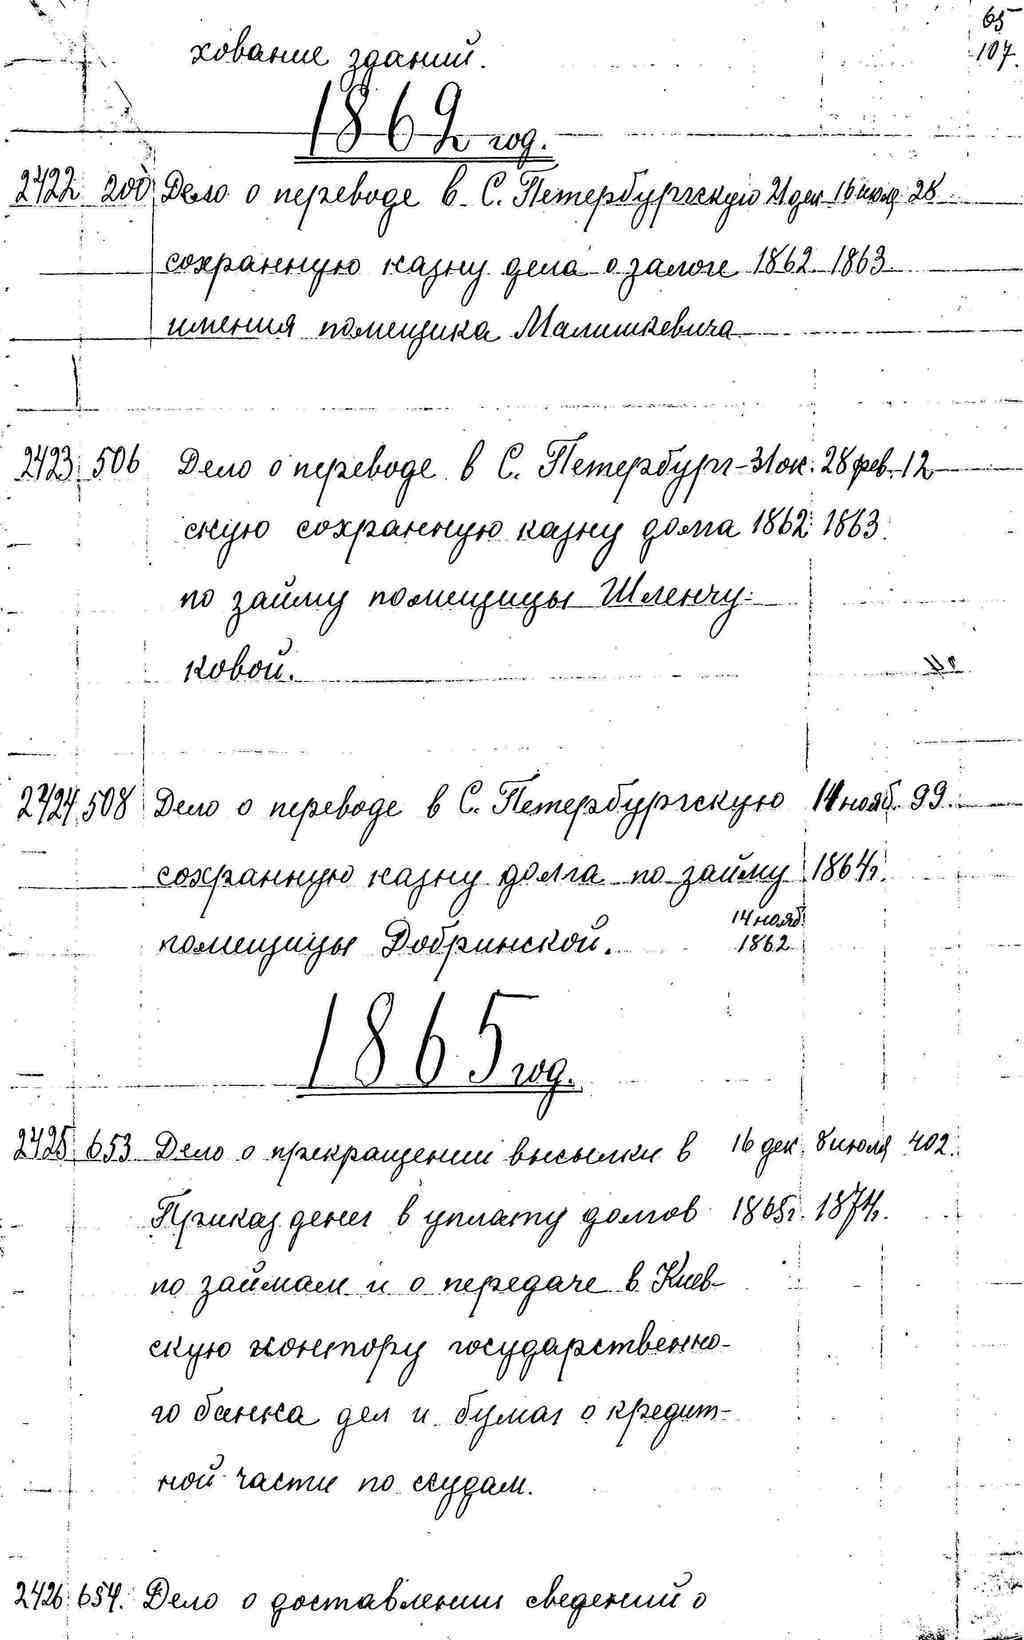 65
107
хование зданий.
1862 год.
2422 200 Дело о переводе в С. Петербургскую 21 дек 16 июля 28
сохранную казну дела о залоге 1862 1863
имения помещика Малишкевича
2423 506 Дело о переводе в С. Петербург- 31 ок. 28 фев. 12
скую сохранную казну долга 1862 1863.
по займу помещицы Шленчу-
ковой.
2424 508 Дело о переводе в С. Петербургскую 14 нояб. 99.
сохранную казну долга по займу 1864г.
14 нояб.
помещицы Добринской. 1862
1865 год.
2425 653 Дело о прекращении высылки в 16 дек. 8 июля 402.
Приказ денег в уплату долгов 1865г. 1874г.
по займам и о передаче в Киев-
скую контору государственно-
го банка дел и бумаг о кредит-
ной части по ссудам.
2426 654. Дело о доставлении сведений о